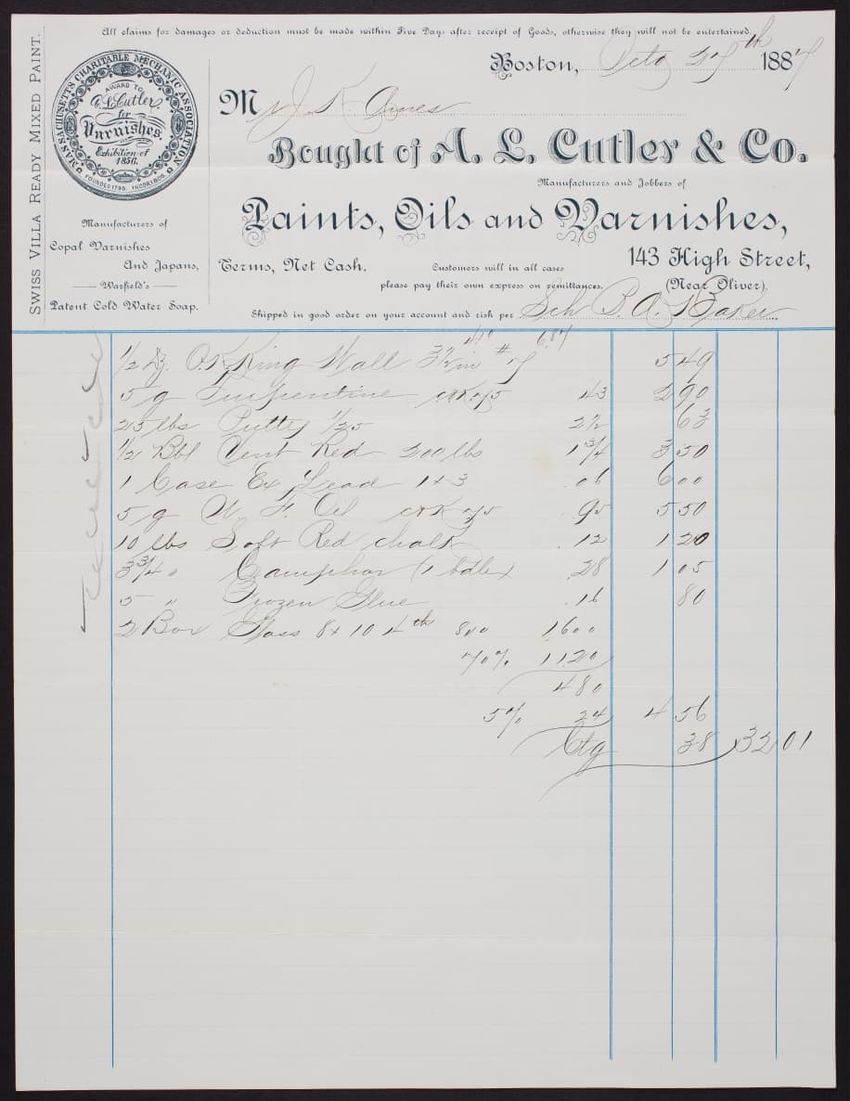 All claims for damages or deduction must be made within Five Days after receipt of Goods, otherwise they will not be entertained.
Boston, Oct 27th 1887
SWISS VILLA READY MIXED PAINT.
MASSACHUSETTS CHARITABLE MECHANIC ASSOCIATION
AWARD TO
A. L. Cutler
for
Varnishes.
Exhibition of
1856.
FOUNDED 1795.
Mr J. K. Ames
Bought of A. L. Cutler & Co.
Manufacturers and Jobbers of
Paints, Oils and Varnishes,
143 High Street,
(Near Oliver).
Manufacturers of
Copal Varnishes
And Japans,
Warfield's
Patent Cold Water Soap.
Terms, Net Cash.
Customers will in all cases
please pay their own express on remittances.
Shipped in good order on your account and risk per Sch B. A. Baker
1/2 Dz. O.K. King Wall 3 1/2 in # 7 5 49
5 g Turpentine 43 2 90
25 lbs Putty 1/25 2 1/2 63
1/2 Bbl Vent Red 200 lbs 1 3/4 3 50
1 Case Ex Lead 1+3 .06 6 00
5 g Oil 90 5 50
10 lbs Soft Red chalk .12 1 20
3 3/4 " Camphor 28 1 05
5 " Frozen Glue .16 80
2 Box Glass 8x10 4th 800 1600
70% 1120
480
5% 24 4 56
Ctg 38 32 01